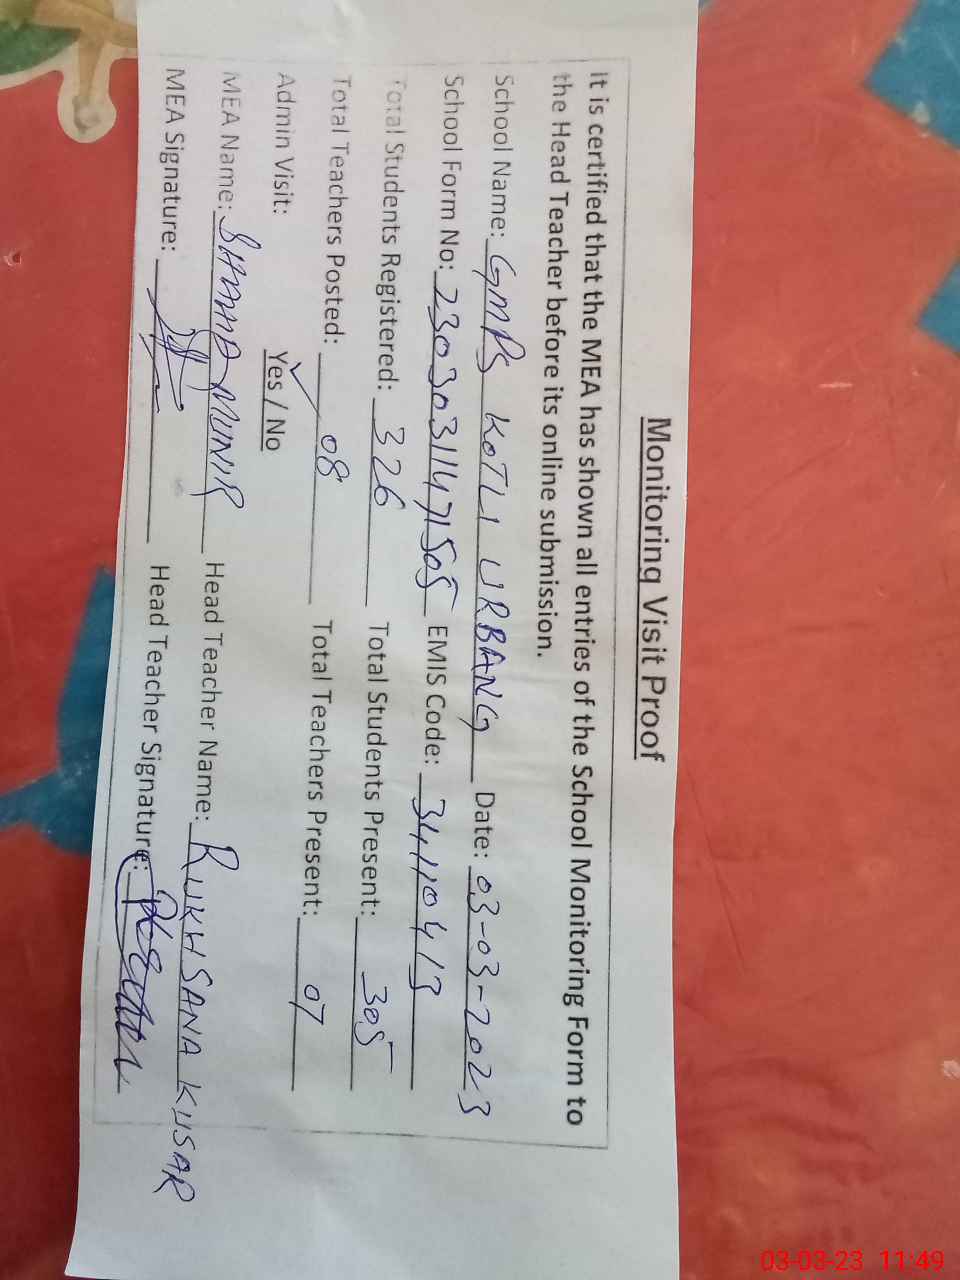 Monitoring Visit Proof
It is certified that the MEA has shown all entries of the School Monitoring Form to
the Head Teacher before its online submission.
School Name: GMPS KOTLI URBANG Date: 03-03-2023
School Form No: 23030311471505 EMIS Code: 34110413
Total Students Registered: 326 Total Students Present: 305
Total Teachers Posted: 08 Total Teachers Present: 07
Admin Visit: Yes / No
MEA Name: SHAMMAD MUNIR Head Teacher Name: RUKHSANA KUSAR
MEA Signature: Head Teacher Signature:
03-03-23 11:49